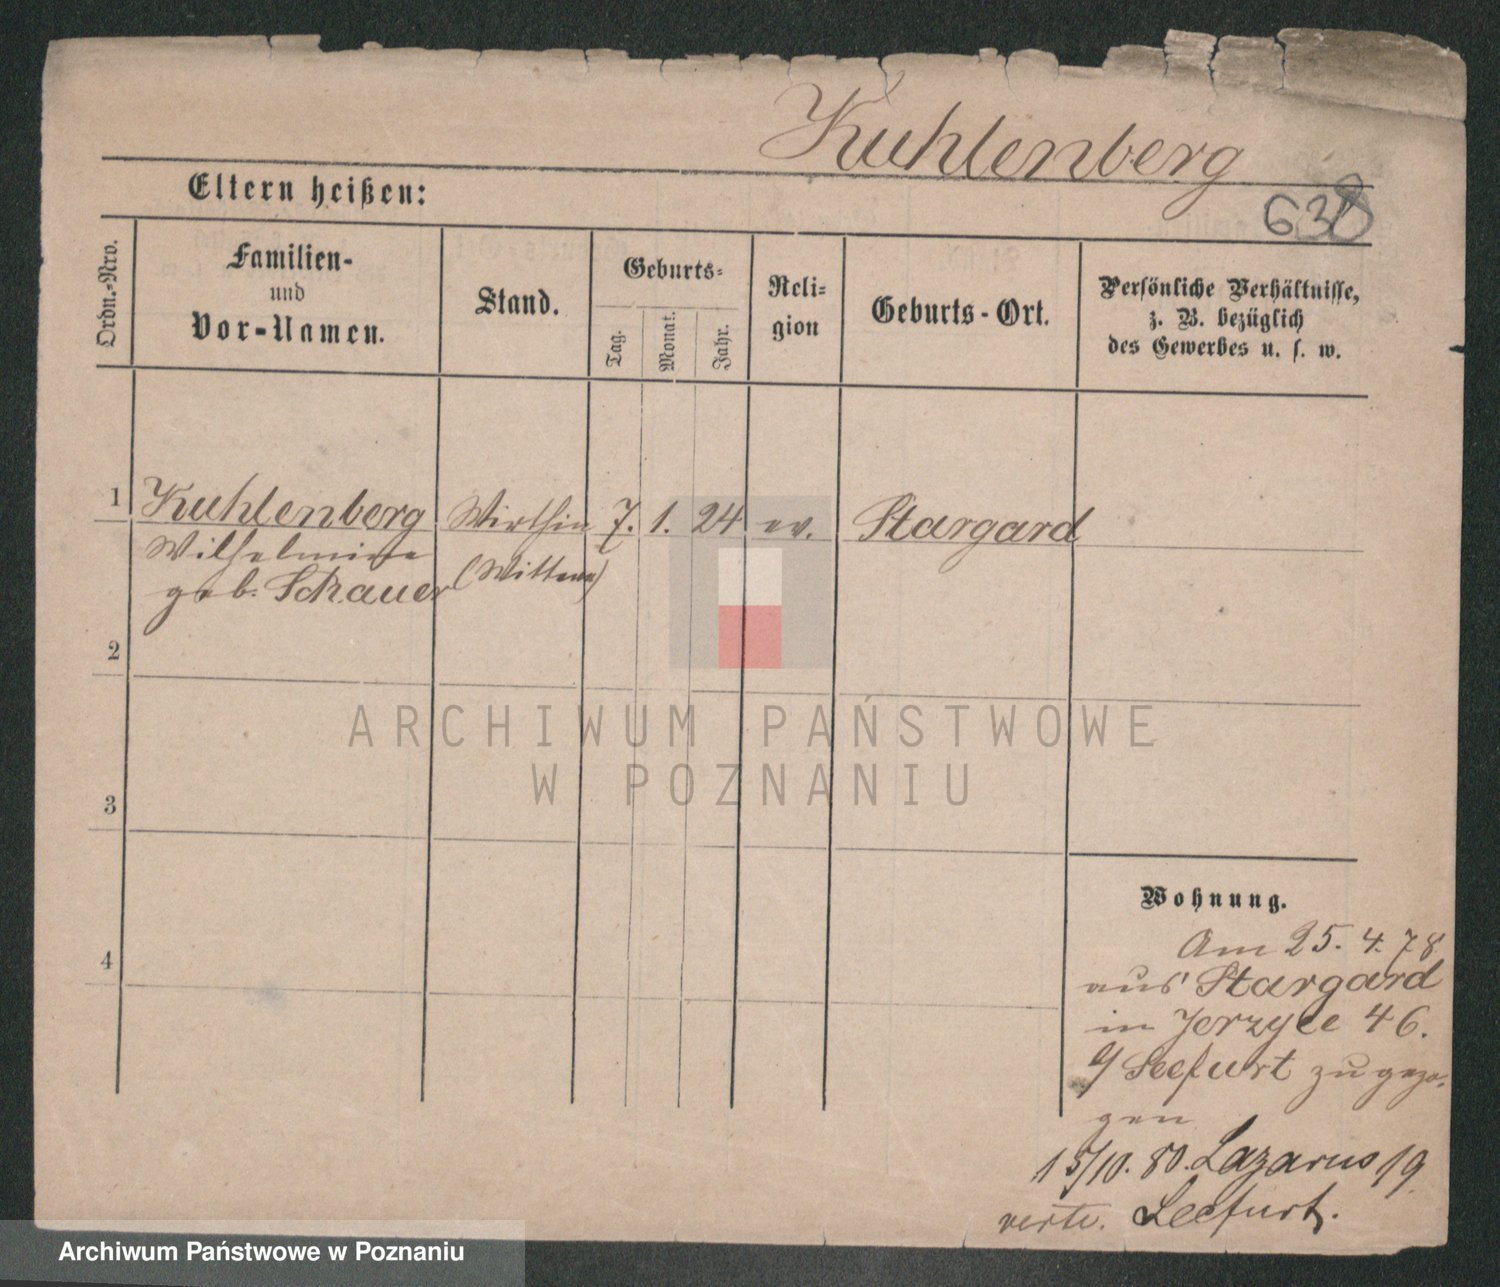 Kuhlenberg
638
Eltern heißen:
Ordn.-Nro.
Familien-
und
Vor-Namen.
Stand.
Geburts-
Tag.
Monat.
Jahr.
Reli-
gion
Geburts-Ort.
Persönliche Verhältnisse,
z. B. bezüglich
des Gewerbes u. s. w.
1 Kuhlenberg Wirthin 7. 1. 24 ev. Stargard
Wilhelmine (Wittwe)
geb. Schauer
2
3
4
ARCHIWUM PAŃSTWOWE
W POZNANIU
Wohnung.
Am 25. 4. 78
aus Stargard
in Jerzyce 46.
b/ Seefurt zugezo-
gen
15/10. 80. Lazarus 19
Seefurt.
Archiwum Państwowe w Poznaniu